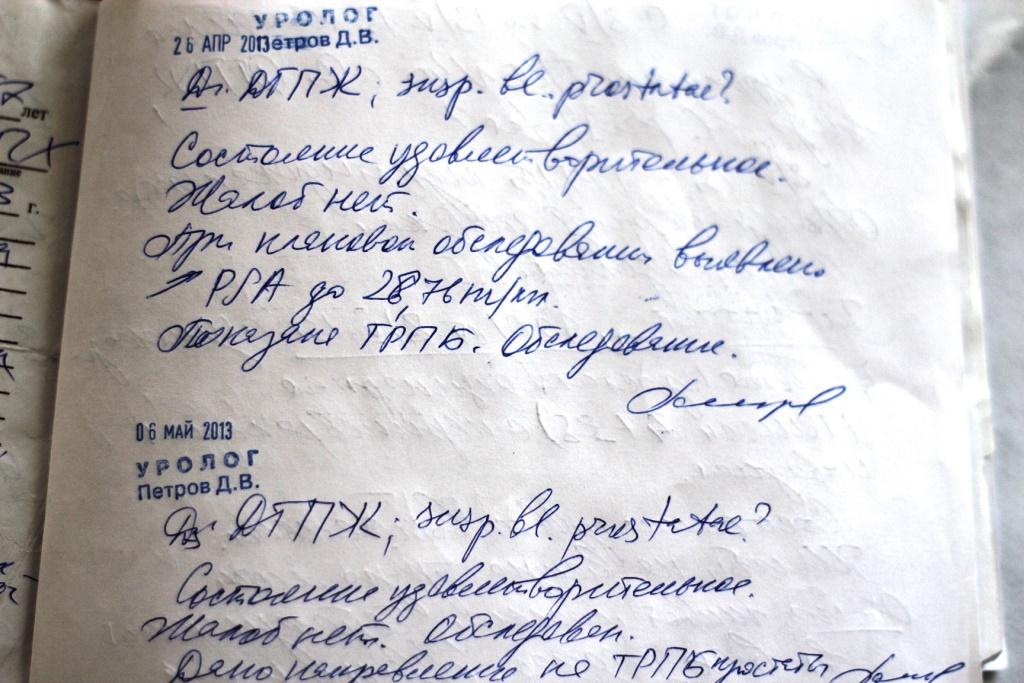 УРОЛОГ
26 АПР 2013 Петров Д.В.
Ds. ДГПЖ; susp. bl. prostatae?
Состояние удовлетворительное.
Жалоб нет.
При плановом обследовании выявлено
↗ PSA до 28,76 нг/мл.
Показана ТРПБ. Обследование.
06 МАЙ 2013
УРОЛОГ
Петров Д.В.
Ds. ДГПЖ; susp. bl. prostatae?
Состояние удовлетворительное.
Жалоб нет. Обследован.
Дано направление на ТРПБ простаты
лет
г.